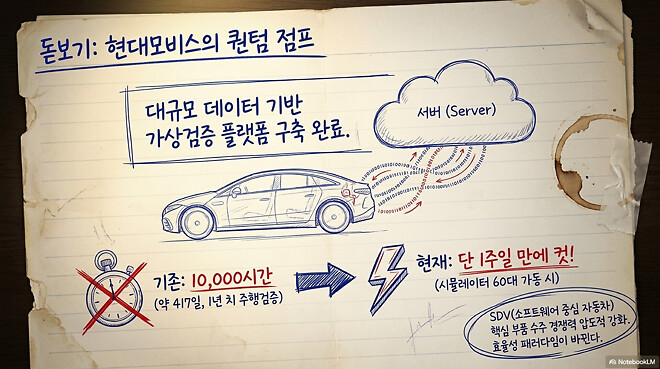 돋보기: 현대모비스의 퀀텀 점프
대규모 데이터 기반
가상검증 플랫폼 구축 완료.
서버 (Server)
기존: 10,000시간
(약 417일, 1년 치 주행검증)
현재: 단 1주일 만에 컷!
(시뮬레이터 60대 가동 시)
SDV(소프트웨어 중심 자동차)
핵심 부품 수주 경쟁력 압도적 강화.
효율성 패러다임이 바뀐다.
NotebookLM